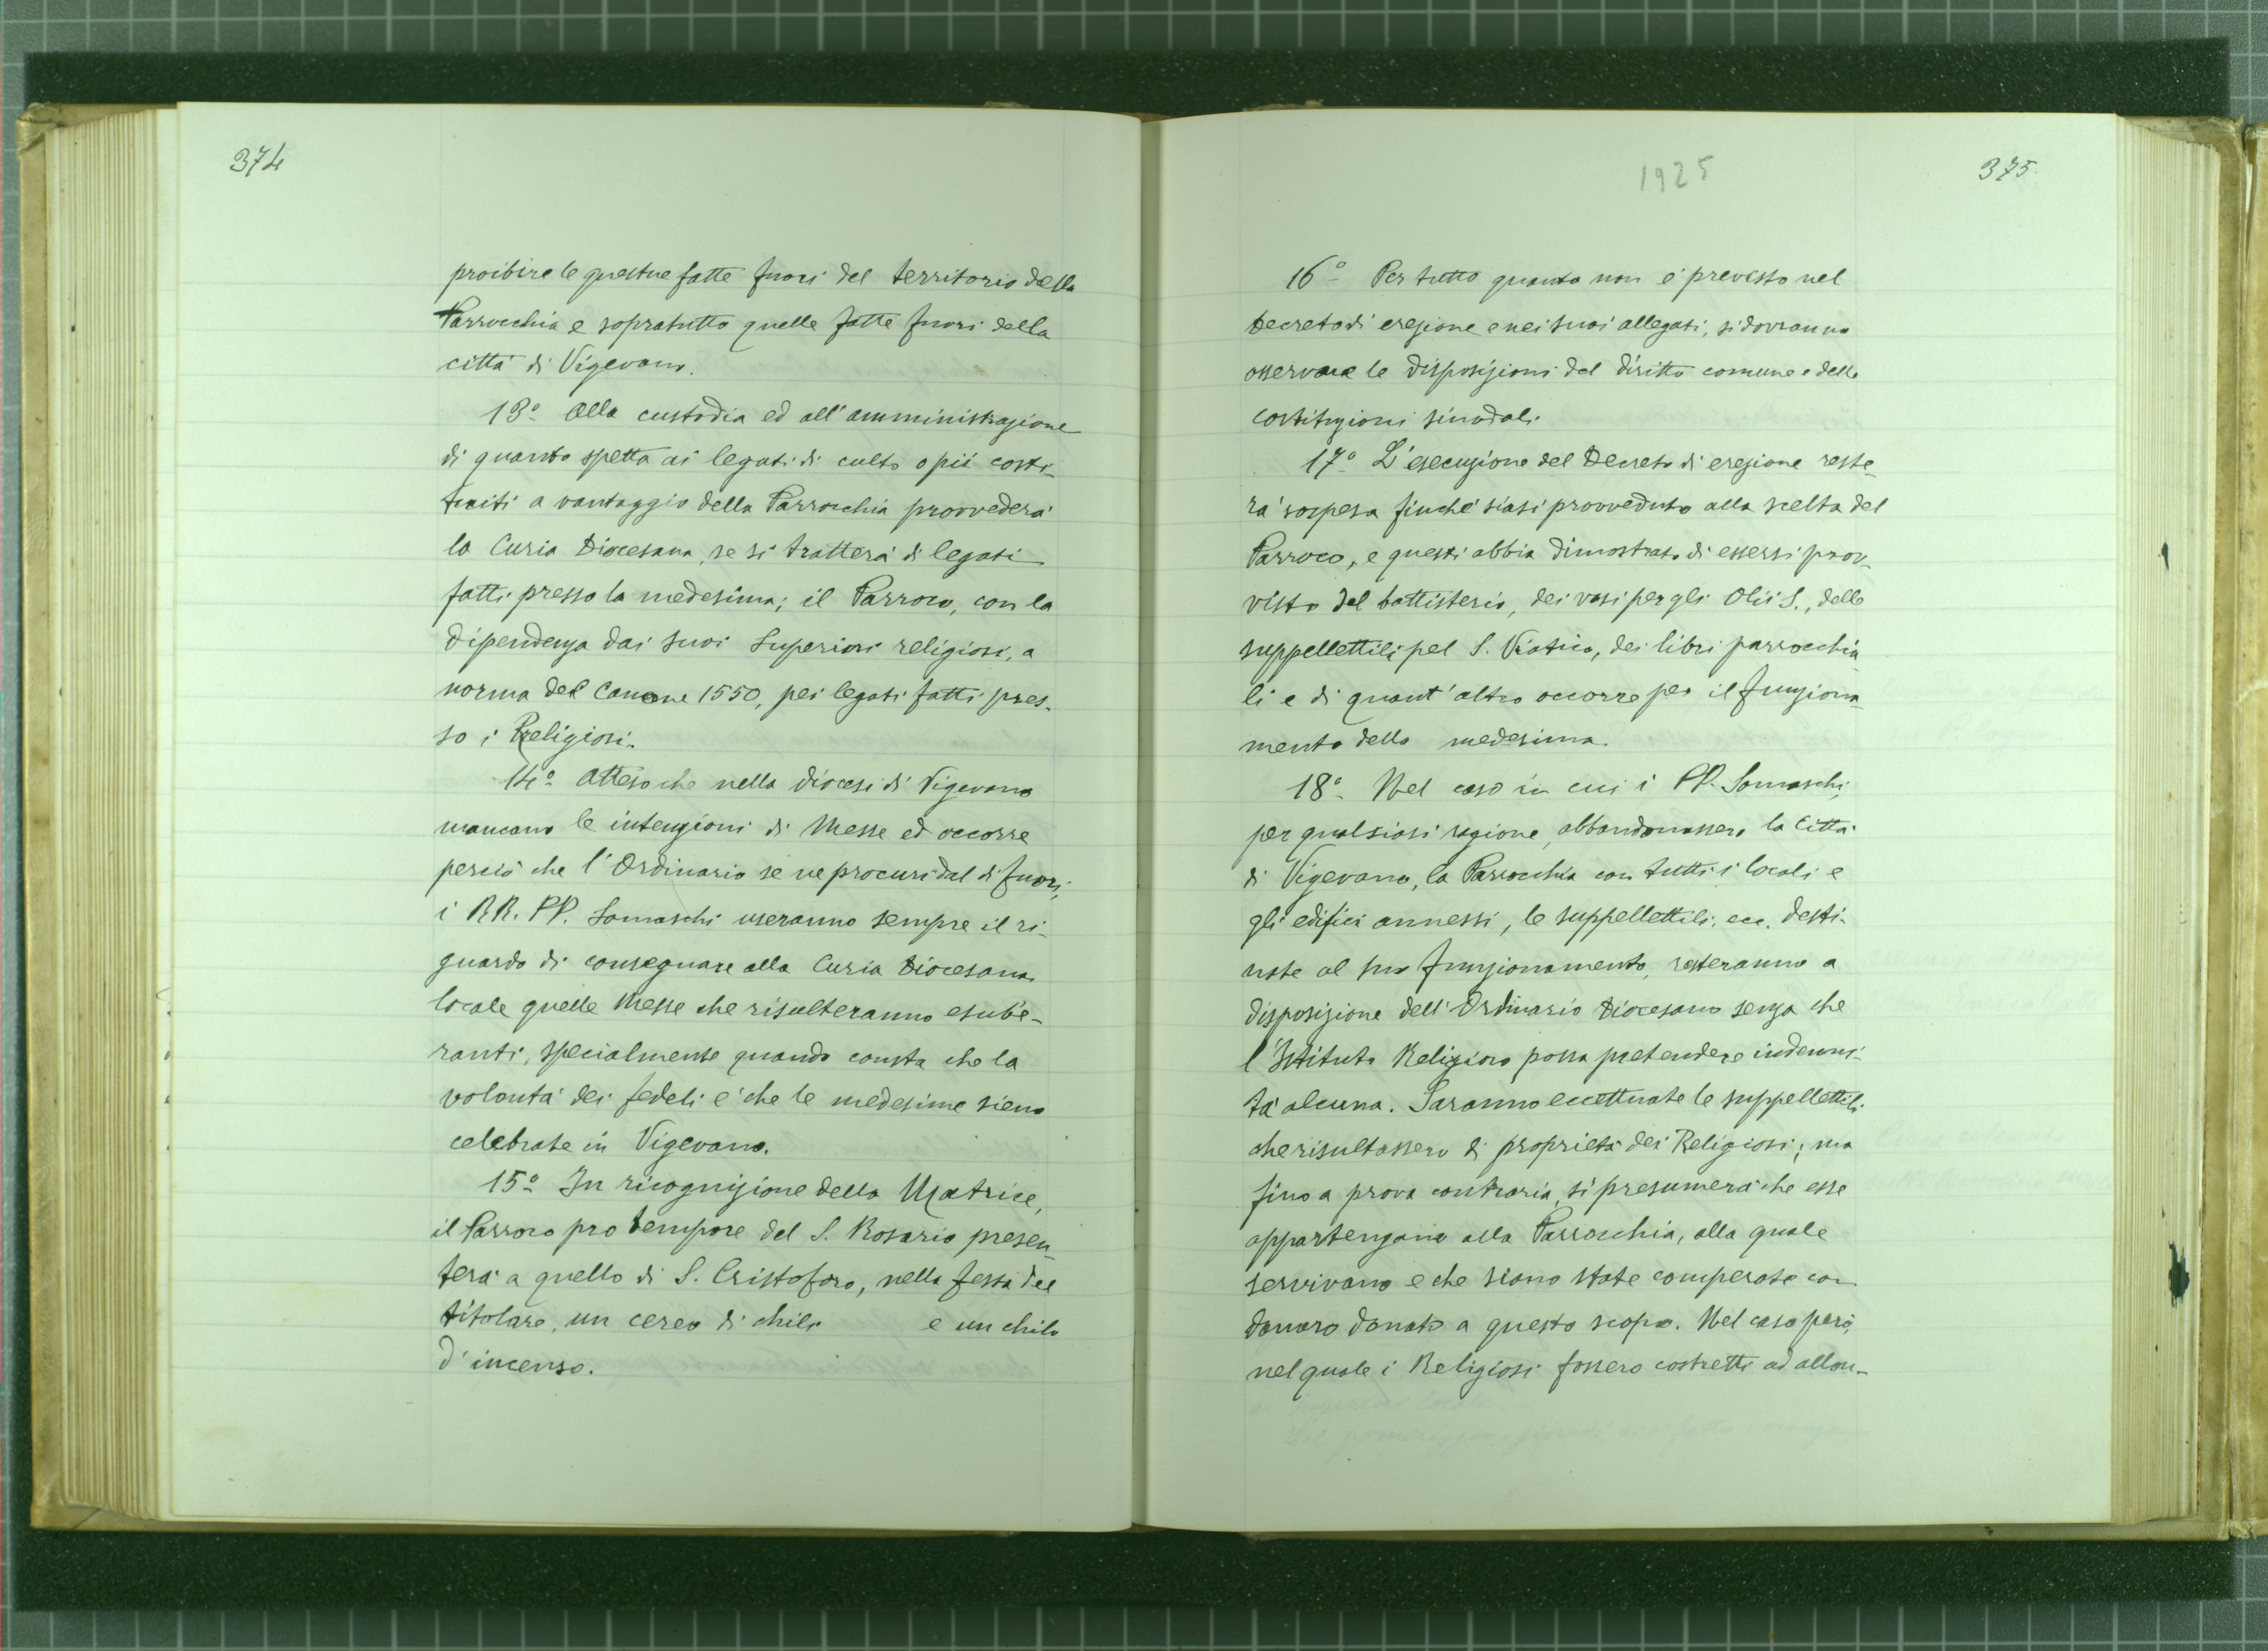 374
proibire le questue fatte fuori del territorio della
Parrocchia e sopratutto quelle fatte fuori della
città di Vigevano.
13º Alla custodia ed all'amministrazione
di quanto spetta ai legati di culto o pii costi-
tuiti a vantaggio della Parrocchia provvederà
la Curia Diocesana, se si tratterà di legati
fatti presso la medesima; il Parroco, con la
dipendenza dai suoi Superiori religiosi, a
norma del Canone 1550, pei legati fatti pres-
so i Religiosi.
14º Atteso che nella diocesi di Vigevano
mancano le intenzioni di Messe ed occorre
perciò che l'Ordinario se ne procuri dal di fuori,
i RR. PP. Somaschi useranno sempre il ri-
guardo di consegnare alla Curia Diocesana
locale quelle Messe che risulteranno esube-
ranti, specialmente quando consta che la
volontà dei fedeli è che le medesime sieno
celebrate in Vigevano.
15º In ricognizione della Matrice,
il Parroco pro tempore del S. Rosario presen-
terà a quello di S. Cristoforo, nella festa del
titolare, un cereo di chilo e un chilo
d'incenso.
1925
375
16º Per tutto quanto non è previsto nel
Decreto di erezione e nei suoi allegati, si dovranno
osservare le disposizioni del diritto comune e delle
costituzioni sinodali.
17º L'esecuzione del Decreto di erezione reste-
rà sospesa finchè siasi provveduto alla scelta del
Parroco, e questi abbia dimostrato di essersi prov-
visto del battisterio, dei vasi per gli Olii S., delle
suppellettili pel S. Viatico, dei libri parrocchia-
li e di quant'altro occorre per il funziona-
mento della medesima.
18º Nel caso in cui i PP. Somaschi,
per qualsiasi ragione, abbandonassero la Città
di Vigevano, la Parrocchia con tutti i locali e
gli edifici annessi, le suppellettili, ecc. desti-
nate al suo funzionamento, resteranno a
disposizione dell'Ordinario Diocesano senza che
l'Istituto Religioso possa pretendere indenni-
tà alcuna. Saranno eccettuate le suppellettili
che risultassero di proprietà dei Religiosi; ma
fino a prova contraria, si presumerà che esse
appartengano alla Parrocchia, alla quale
servivano e che siano state comperate con
danaro donato a questo scopo. Nel caso però,
nel quale i Religiosi fossero costretti ad allon-